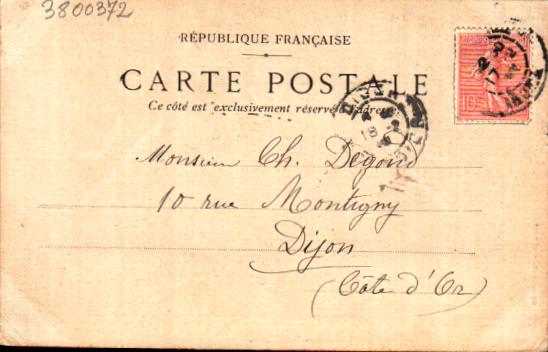 3800372
RÉPUBLIQUE FRANÇAISE
CARTE POSTALE
Ce côté est exclusivement réservé à l'adresse
Monsieur Ch. Degond
10 rue Montigny
Dijon
(Côte d'Or)